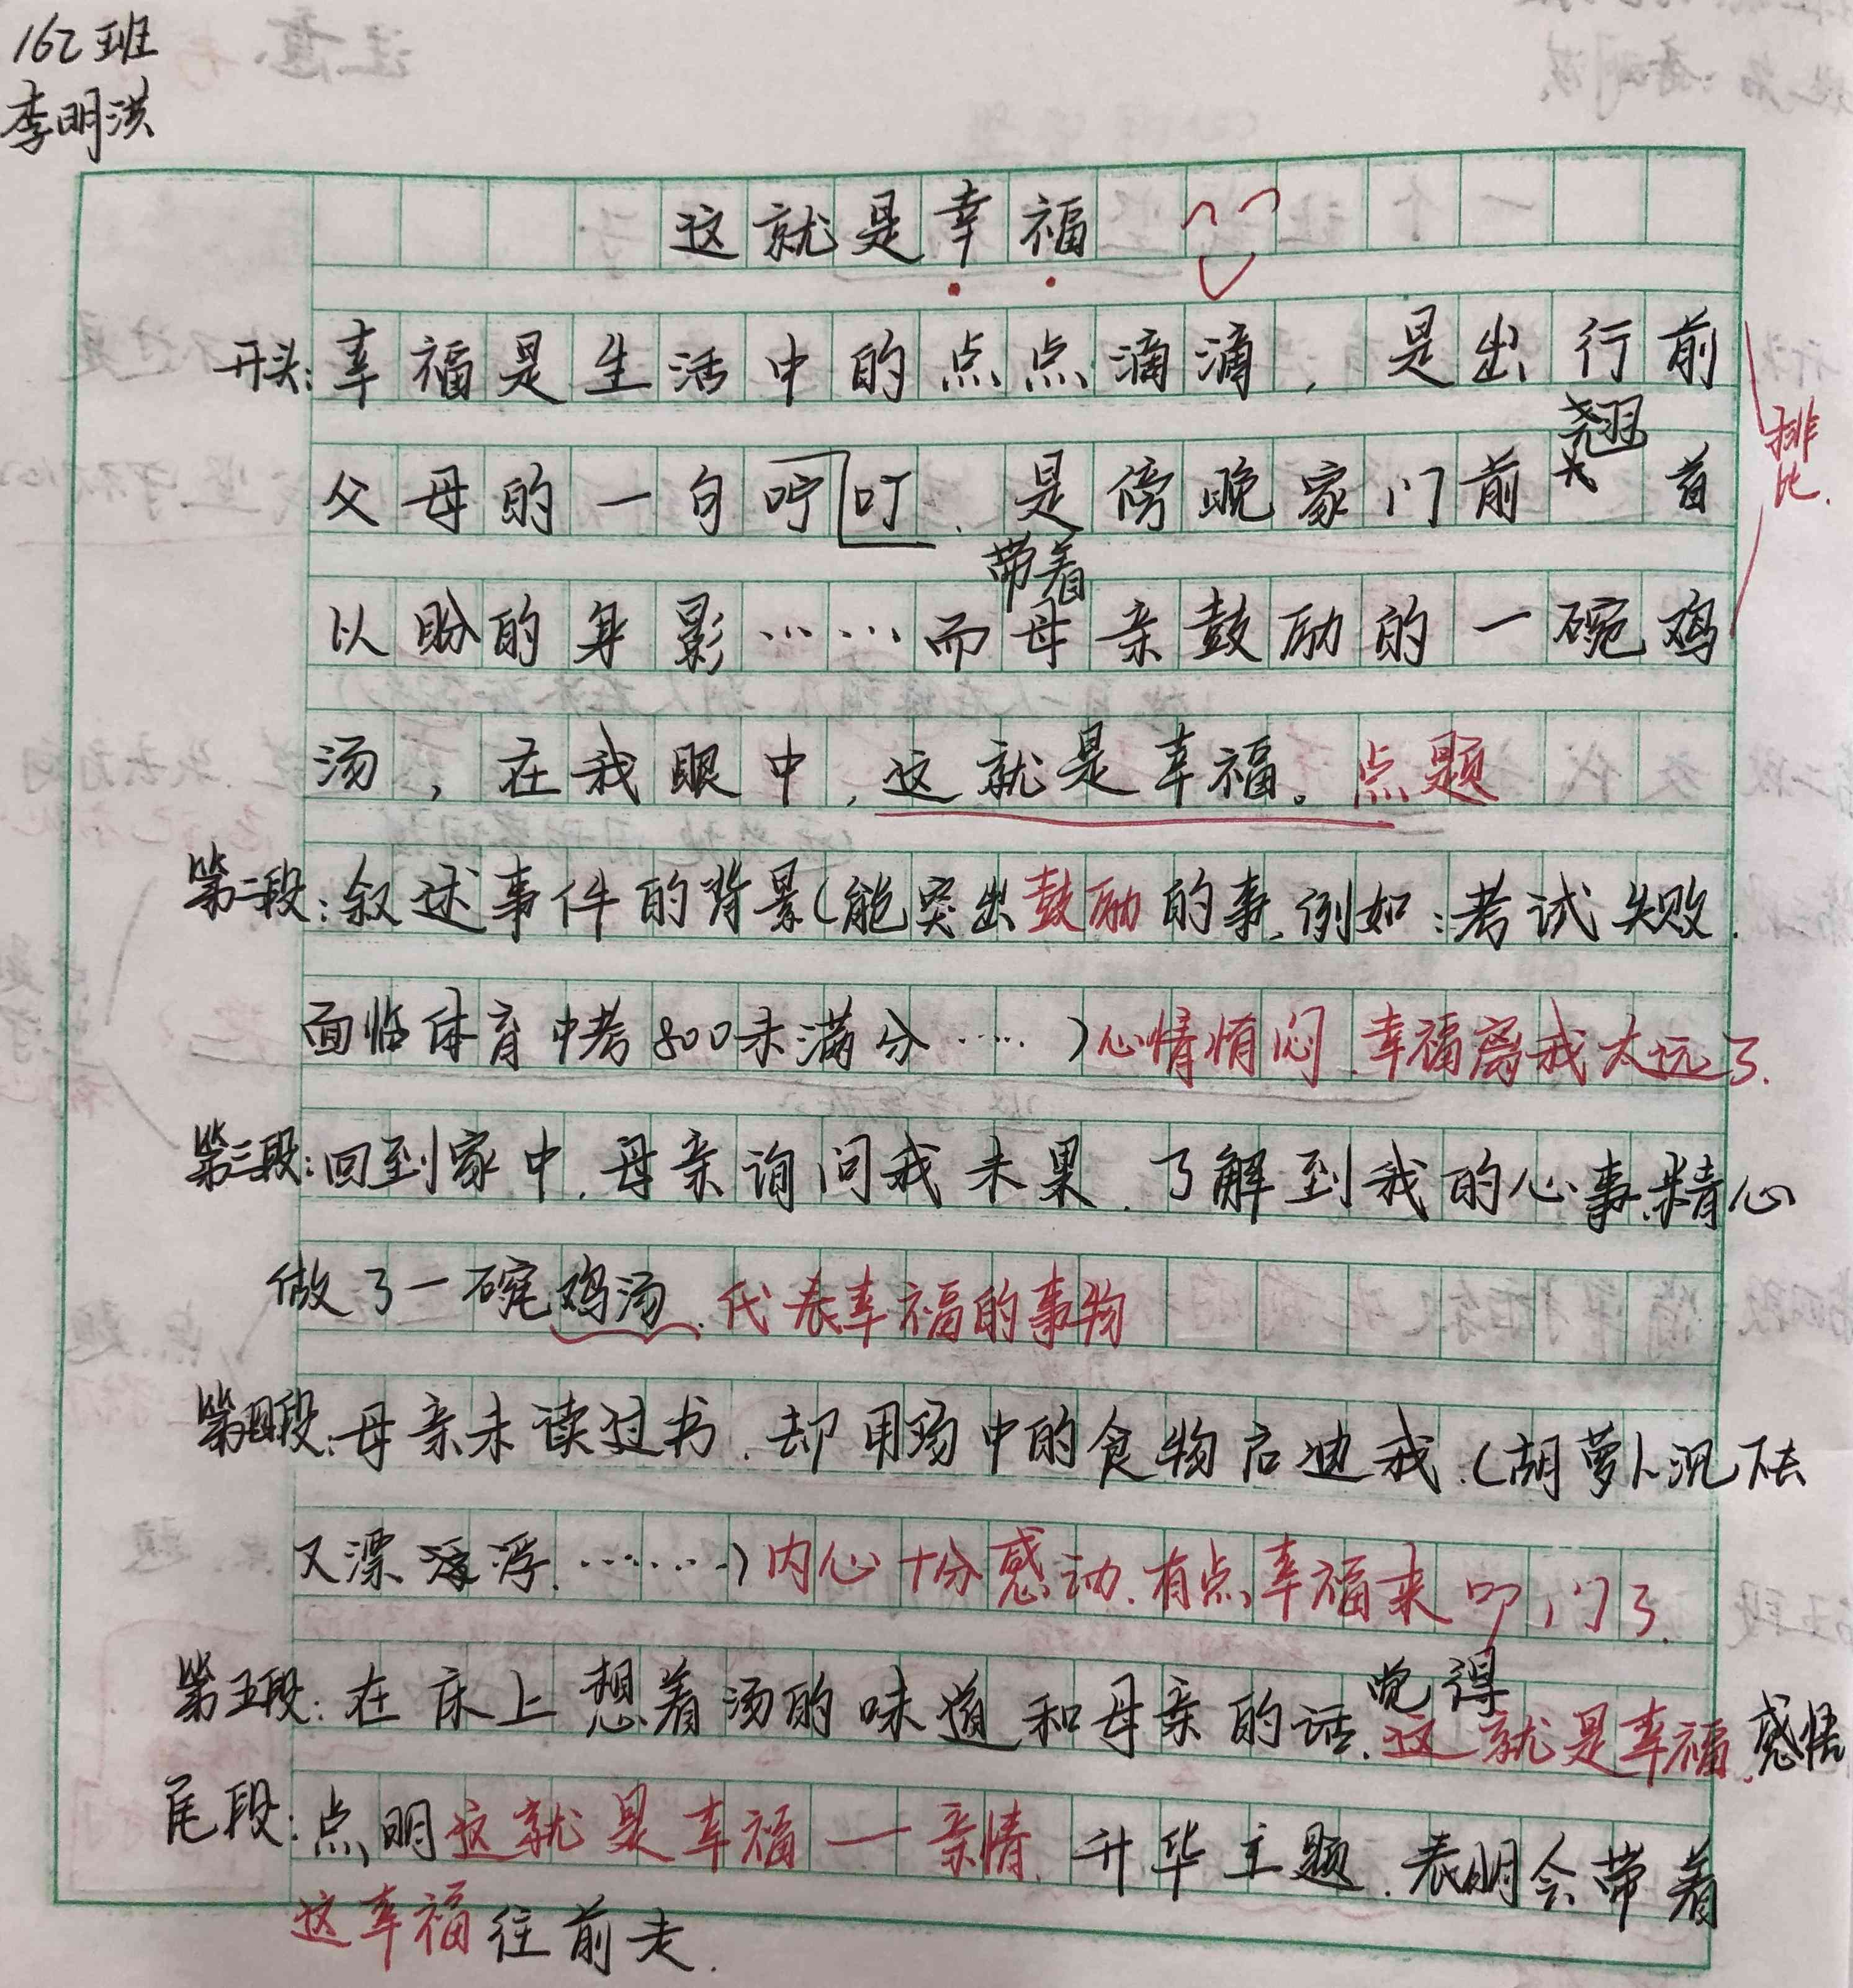 162班
李明洪
这就是幸福
开头:幸福是生活中的点点滴滴,是出行前
排比.
父母的一句咛叮、是傍晚家门前翘首
以盼的身影……而带着母亲鼓励的一碗鸡
汤,在我眼中,这就是幸福。点题
第二段:叙述事件的背景(能突出鼓励的事,例如:考试失败.
面临体育中考800未满分……)心情烦闷.幸福离我太远了.
第三段:回到家中,母亲询问我未果.了解到我的心事.精心
做了一碗鸡汤.代表幸福的事物
第四段:母亲未读过书.却用汤中的食物启迪我.(胡萝卜沉下去
又漂浮.……)内心十分感动.有点幸福来叩门了.
第五段:在床上想着汤的味道和母亲的话.觉得这就是幸福.感悟
尾段:点明这就是幸福—亲情.升华主题.表明会带着
这幸福往前走.